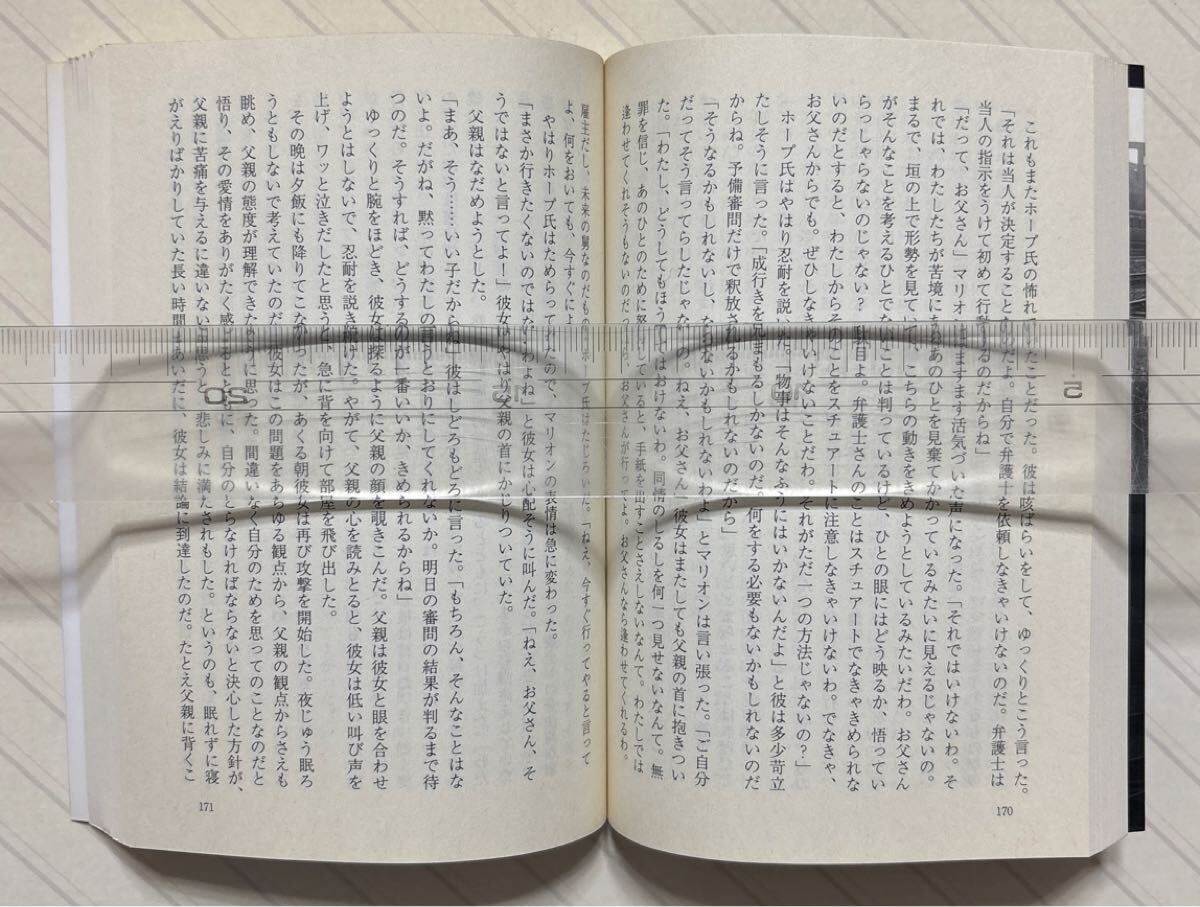 これもまたホープ氏の怖れていたことだった。彼は咳ばらいをして、ゆっくりとこう言った。
「それは当人が決定することなのだよ。自分で弁護士を依頼しなきゃいけないのだ。弁護士は
当人の指示をうけて初めて行動するのだからね」
「だって、お父さん」マリオンはますます活気づいた声になった。「それではいけないわ。そ
れでは、わたしたちが苦境にあるあのひとを見棄てかかっているみたいに見えるじゃないの。
まるで、垣の上で形勢を見ていて、こちらの動きをきめようとしているみたいだわ。お父さん
がそんなことを考えるひとでないことは判っているけど、ひとの眼にはどう映るか、悟ってい
らっしゃらないのじゃない? 駄目よ。弁護士さんのことはスチュアートでなきゃきめられな
いのだとすると、わたしからそのことをスチュアートに注意しなきゃいけないわ。でなきゃ、
お父さんからでも。ぜひしなきゃいけないことだわ。それがただ一つの方法じゃないの?」
ホープ氏はやはり忍耐を説いた。「物事はそんなふうにはいかないんだよ」と彼は多少苛立
たしそうに言った。「成行きを見まもるしかないのだ。何をする必要もないかもしれないのだ
からね。予備審問だけで釈放されるかもしれないのだから」
「そうなるかもしれないし、ならないかもしれないわよ」とマリオンは言い張った。「ご自分
だってそう言ってらしたじゃないの。ねえ、お父さん」彼女はまたしても父親の首に抱きつい
た。「わたし、どうしてもほうってはおけないわ。同情のしるしを何一つ見せないなんて。無
罪を信じ、あのひとのために努力していると、手紙を出すことさえしないなんて。わたしでは
逢わせてくれそうもないのだったら、お父さんが行ってよ。お父さんなら逢わせてくれるわ。
170
雇主だし、未来の舅なのだもの
よ、何をおいても、今すぐによ
プ氏はたじろいた。「ねえ、今すぐ行ってやると言って
やはりホープ氏はためらっていたので、マリオンの表情は急に変わった。
「まさか行きたくないのではないわよね」と彼女は心配そうに叫んだ。「ねえ、お父さん、そ
うではないと言ってよ!」彼女はやはり父親の首にかじりついていた。
父親はなだめようとした。
「まあ、そう……いい子だからね」彼はしどろもどろに言った。「もちろん、そんなことはな
いよ。だがね、黙ってわたしの言うとおりにしてくれないか。明日の審問の結果が判るまで待
つのだ。そうすれば、どうするのが一番いいか、きめられるからね」
ゆっくりと腕をほどき、彼女は探るように父親の顔を覗きこんだ。父親は彼女と眼を合わせ
ようとはしないで、忍耐を説き続けた。やがて、父親の心を読みとると、彼女は低い叫び声を
上げ、ワッと泣きだしたと思うと、急に背を向けて部屋を飛び出した。
その晩は夕飯にも降りてこなかったが、あくる朝彼女は再び攻撃を開始した。夜じゅう眠ろ
うともしないで考えていたのだ。彼女はこの問題をあらゆる観点から、父親の観点からさえも
眺め、父親の態度が理解できたように思った。間違いなく自分のためを思ってのことなのだと
悟り、その愛情をありがたく感じるとともに、自分のとらなければならないと決心した方針が、
父親に苦痛を与えるに違いないと思うと、悲しみに満たされもした。というのも、眠れずに寝
がえりばかりしていた長い時間のあいだに、彼女は結論に到達したのだ。たとえ父親に背くこ
171
5
20